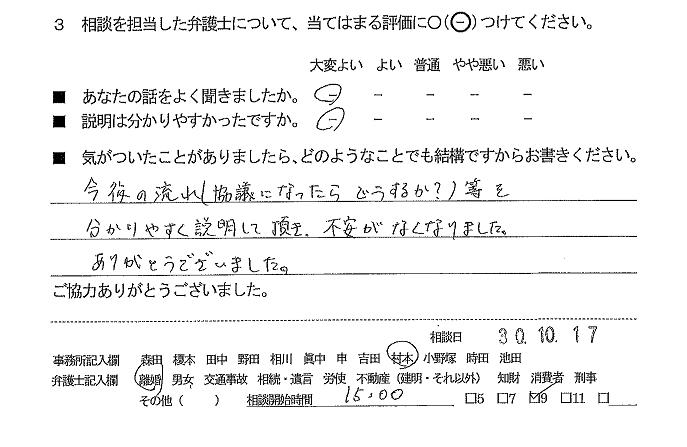 3 相談を担当した弁護士について、当てはまる評価に○(㊀)つけてください。
大変よい よい 普通 やや悪い 悪い
■ あなたの話をよく聞きましたか。 － － － － －
■ 説明は分かりやすかったですか。 － － － － －
■ 気がついたことがありましたら、どのようなことでも結構ですからお書きください。
今後の流れ(協議になったらどうするか?)等を
分かりやすく説明して頂き、不安がなくなりました。
ありがとうございました。
ご協力ありがとうございました。
相談日 30.10.17
事務所記入欄 森田 榎本 田中 野田 相川 眞中 申 吉田 村本 小野塚 時田 池田
弁護士記入欄 離婚 男女 交通事故 相続・遺言 労使 不動産(建明・それ以外) 知財 消費者 刑事
その他( ) 相談開始時間 15:00 □5 □7 ☑9 □11 □